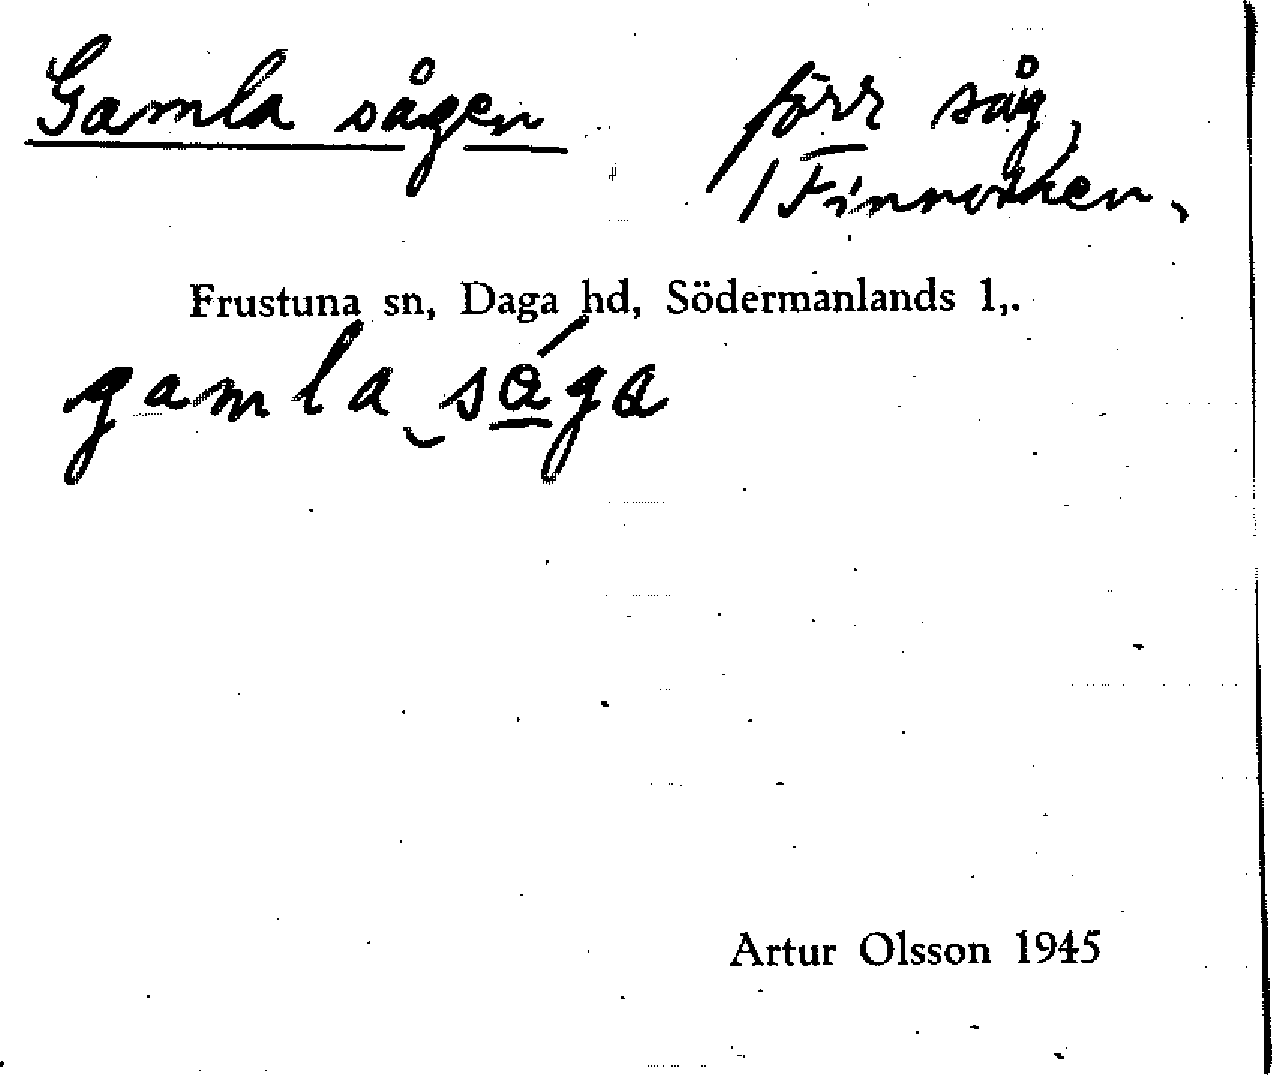 Gamla sågen förr såg,
/ Finnviken.
Frustuna sn, Daga hd, Södermanlands l,.
gamla såga
Artur Olsson 1945